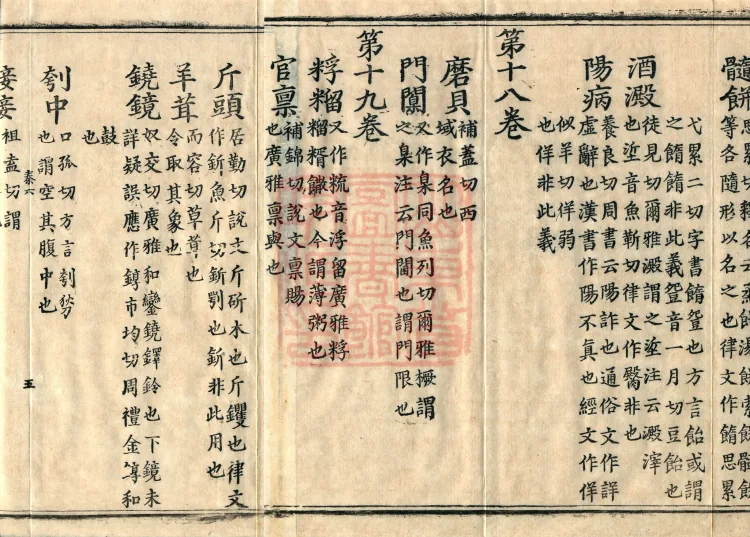 等各隨形以名之也律文作䭉思累
弋累二切字書䭉䬾也方言飴或謂
之䭉䭉非此義䬾音一月切豆飴也
酒澱
徒見切爾雅澱謂之垽注云澱滓
也垽音魚靳切律文作非也
陽病
養良切周書云陽詐也通俗文作詳
虛辭也漢書作陽不真也經文作佯
似羊切佯弱
也佯非此義
第十八卷
磨貝
補蓋切西
域衣名也
門闑
又作臬同魚列切爾雅橛謂
之臬注云門閫也謂門限也
第十九卷
粰䊩
又作音浮留廣雅粰
䊩糈饊也今謂薄粥也
官禀
補錦切說文禀賜
也廣雅禀與也
斤頭
居勤切說文斤斫木也斤钁也律文
作釿魚斤切釿剫也釿非此用也
羊茸
而容切草茸也
令取其象也
鐃鏡
奴交切廣雅和鑾鐃鐸鈴也下鏡未
詳疑誤應作錞市均切周禮金錞和
鼓
也
刳中
口孤切方言刳
也謂空其腹中也
六
五
切謂